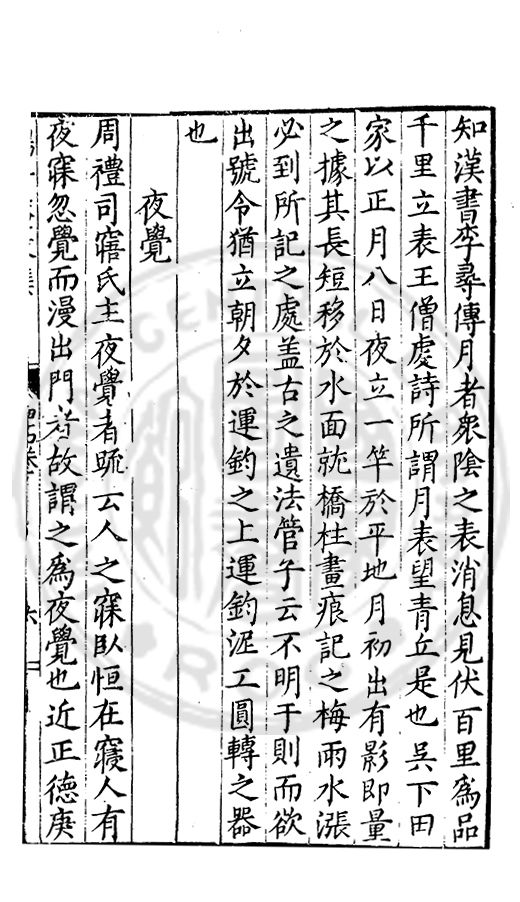 知漢書李尋傳月者衆陰之表消息見伏百里爲品
千里立表王僧虔詩所謂月表望青丘是也吳下田
家以正月八日夜立一竿於平地月初出有影即量
之據其長短移於水面就橋柱畫痕記之梅雨水漲
必到所記之處盖古之遺法管子云不明于則而欲
出號令猶立朝夕於運鈞之上運鈞泥工圓轉之器
也
夜覺
周禮司寤氏主夜覺者䟽云人之寐臥恒在寢人有
夜寐忽覺而漫出門者故謂之爲夜覺也近正德庚